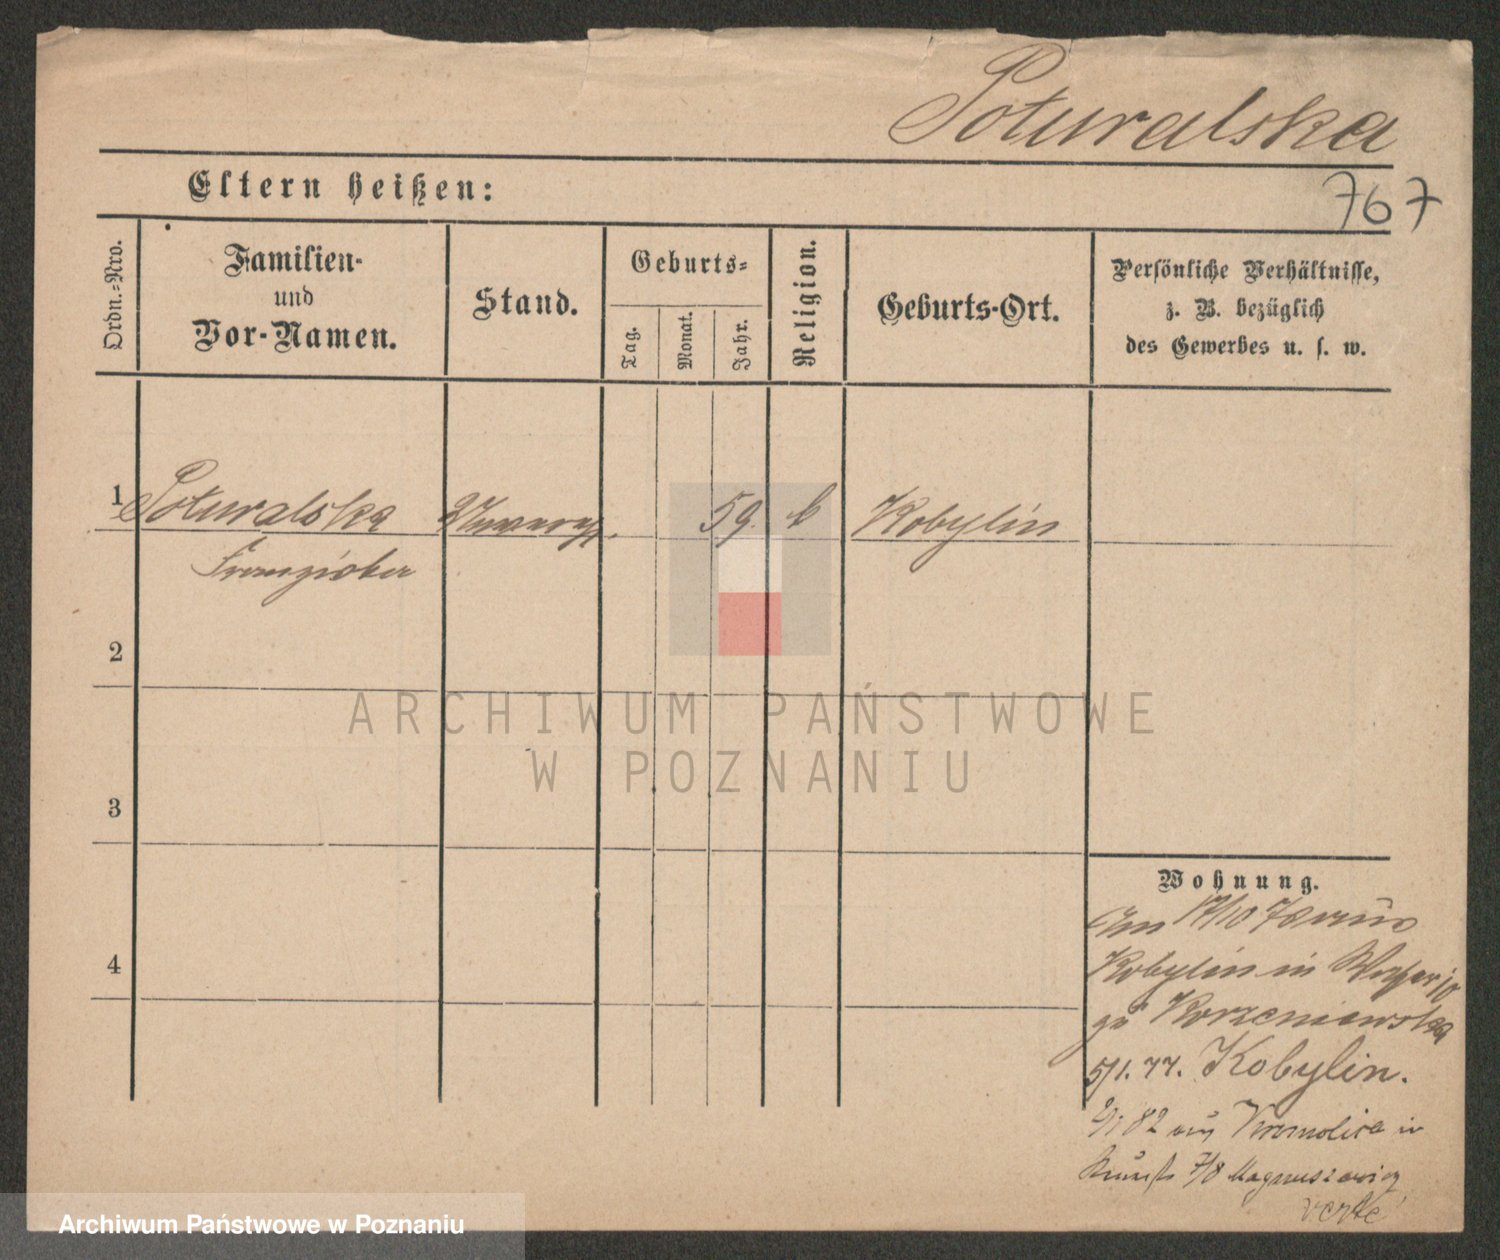 Poturalska
767
Eltern heißen:
Ordn.-Nro.
Familien-
und
Vor-Namen.
Stand.
Geburts-
Tag.
Monat.
Jahr.
Religion.
Geburts-Ort.
Persönliche Verhältnisse,
z. B. bezüglich
des Gewerbes u. s. w.
1
Poturalska
59.
k
Kobylin
Franziska
2
3
4
Wohnung.
Am 17/10 76 aus
Kobylin in
zu Korzeniewska
5/1. 77. Kobylin.
82 aus
7/8 Magnuszewicz
verte
ARCHIWUM PAŃSTWOWE
W POZNANIU
Archiwum Państwowe w Poznaniu